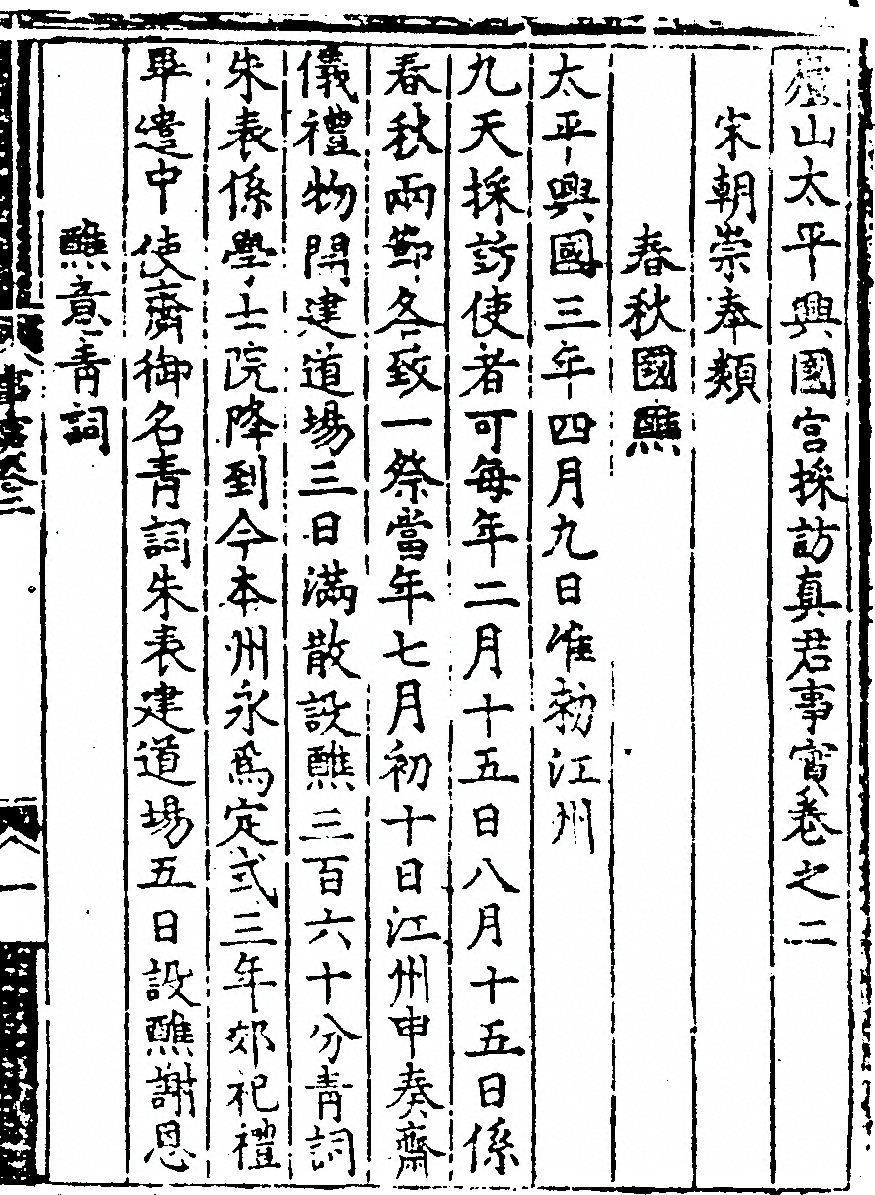 廬山太平興國宮採訪真君事實卷之二
宋朝崇奉類
春秋國醮
太平興國三年四月九日准勑江州
九天採訪使者可每年二月十五日八月十五日係
春秋兩節各致一祭當年七月初十日江州申奏齋
儀禮物開建道場三日滿散設醮三百六十分青詞
朱表係學士院降到今本州永爲定式三年郊祀禮
畢遣中使齎御名青詞朱表建道場五日設醮謝恩
醮意青詞
事實卷二
一